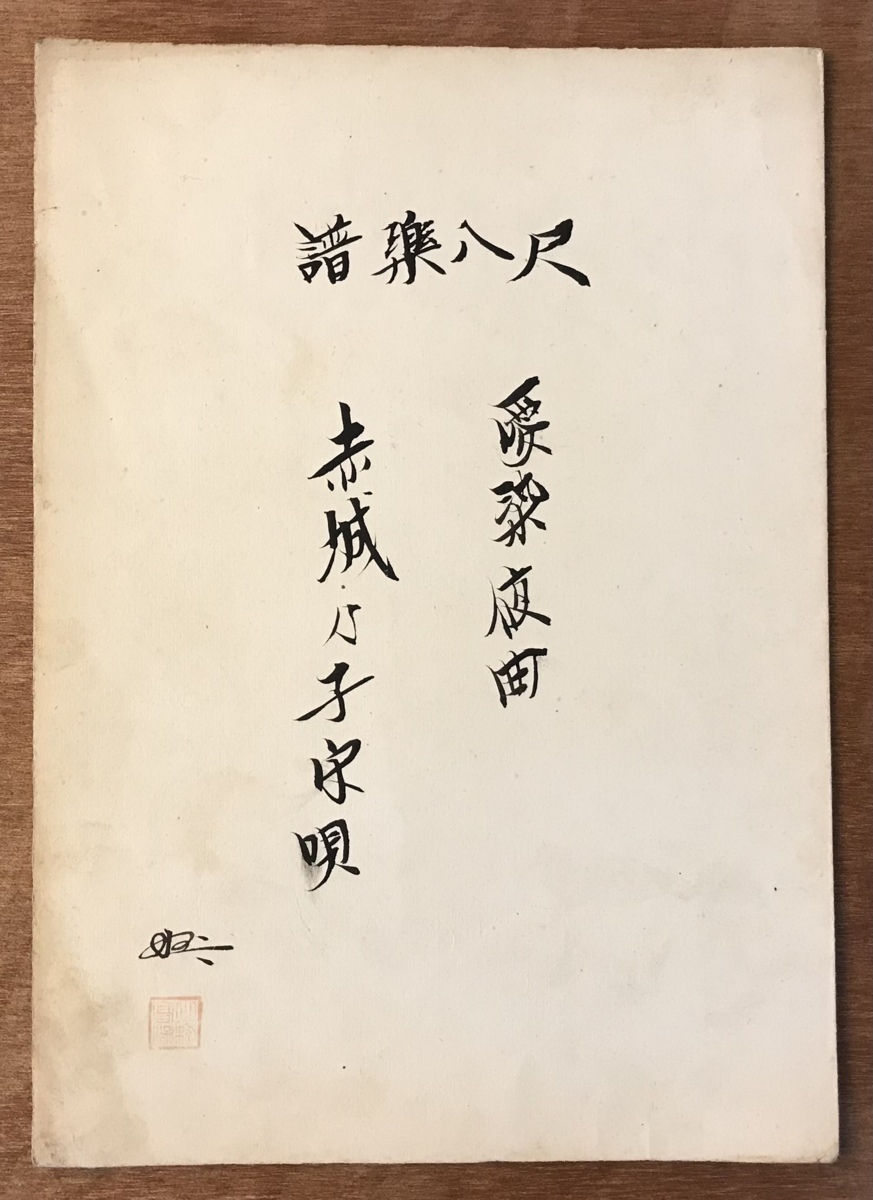 尺八樂譜
愛染夜曲
赤城の子守唄